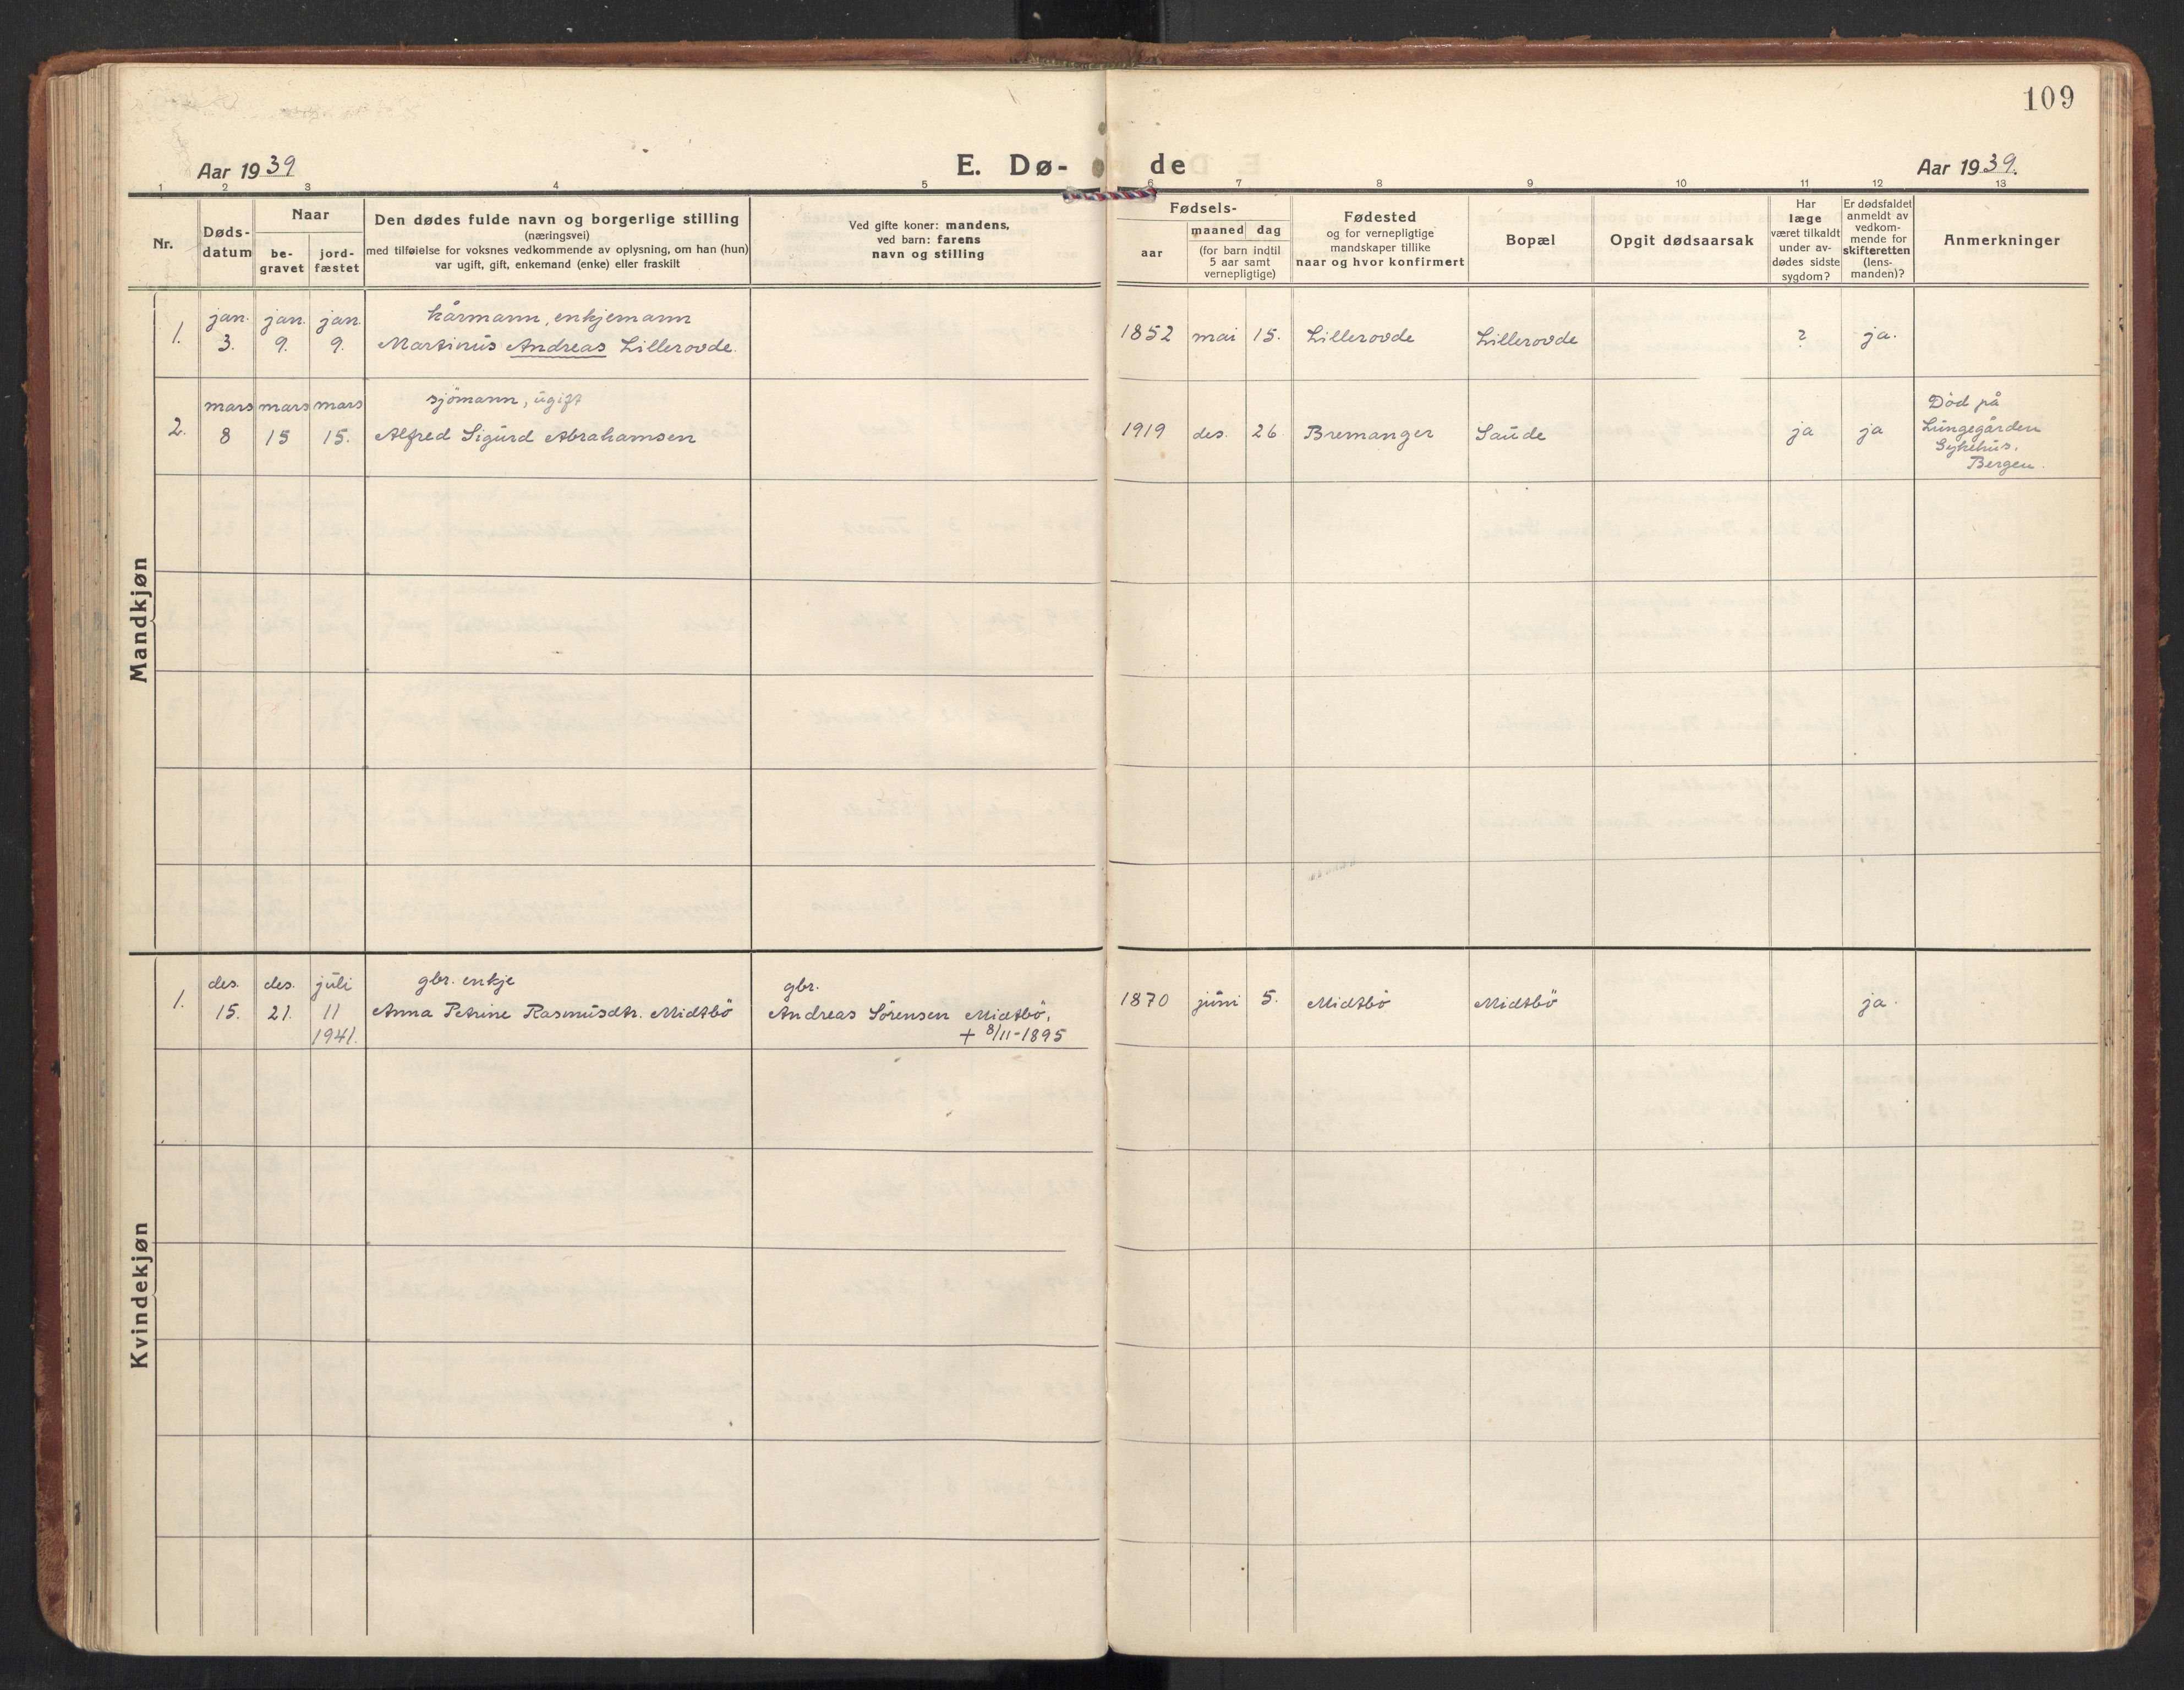 109
Aar 1939
E. Dø-
de
Aar 1939.
1 2 3 4 5 6 7 8 9 10 11 12 13
Nr.
Døds-
datum
Naar
be-
gravet
jord-
fæstet
Den dødes fulde navn og borgerlige stilling
(næringsvei)
med tilføielse for voksnes vedkommende av oplysning, om han (hun)
var ugift, gift, enkemand (enke) eller fraskilt
Ved gifte koner: mandens,
ved barn: farens
navn og stilling
Fødsels-
aar
maaned dag
(for barn indtil
5 aar samt
vernepligtige)
Fødested
og for vernepligtige
mandskaper tillike
naar og hvor konfirmert
Bopæl
Opgit dødsaarsak
Har
læge
været tilkaldt
under av-
dødes sidste
sygdom?
Er dødsfaldet
anmeldt av
vedkom-
mende for
skifteretten
(lens-
manden)?
Anmerkninger
Mandkjøn
jan. jan. jan. kårmann, enkjemann
1. 3. 9. 9. Martinus Andreas Lillerovde. 1852 mai 15. Lillerovde Lillerovde ? ja.
mars mars mars sjömann, ugift
2. 8 15 15. Alfred Sigurd Abrahamsen 1919 des. 26. Bremanger Saude ja ja
Död på
Lungegården
Sykehus,
Bergen.
Kvindekjøn
des. des. juli gbr. enkje gbr.
1. 15. 21. 11 Anna Petrine Rasmusdtr. Midtbö Andreas Sörensen Midtbö, 1870 juni 5. Midtbö Midtbö ja.
1941. + 8/11-1895